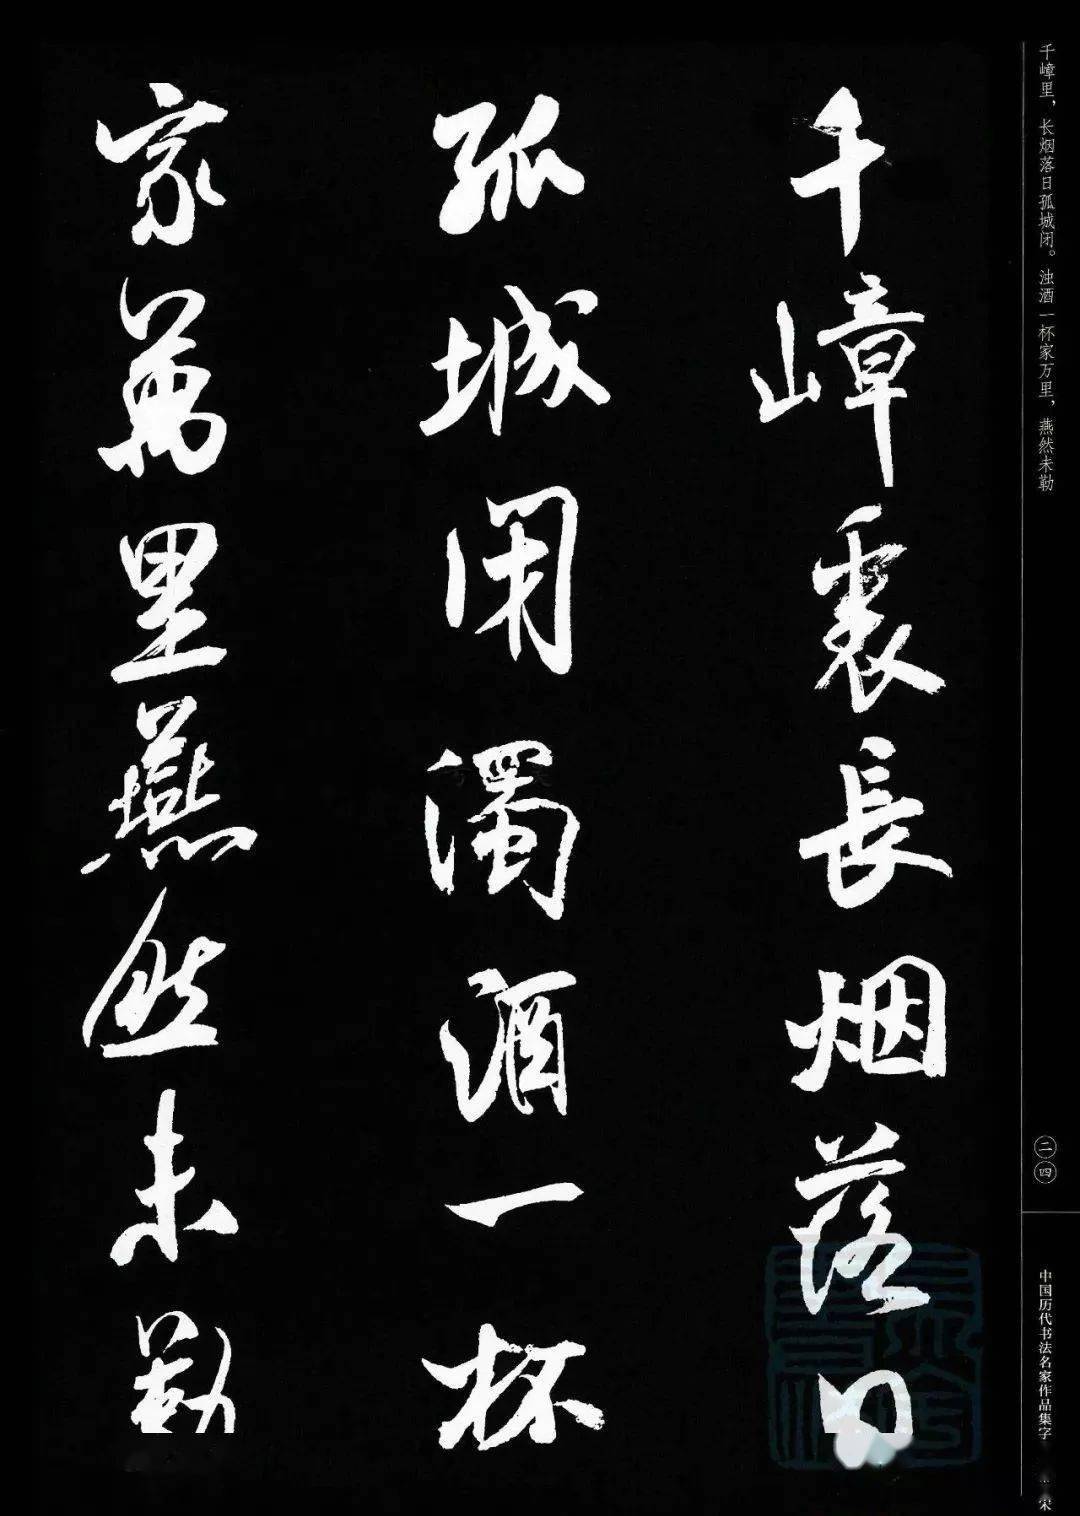 千嶂里，长烟落日孤城闭。浊酒一杯家万里，燕然未勒
二四
中国历代书法名家作品集字
宋
千嶂裏長烟落日
孤城闭濁酒一杯
家萬里燕然未勒